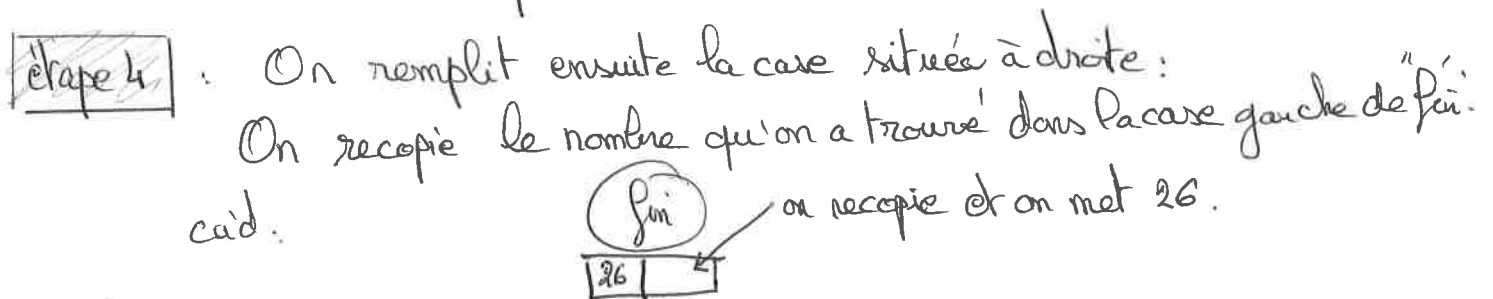 étape 4 : On remplit ensuite la case située à droite :
On recopie le nombre qu'on a trouvé dans la case gauche de "fin".
càd.
fin
on recopie et on met 26.
26